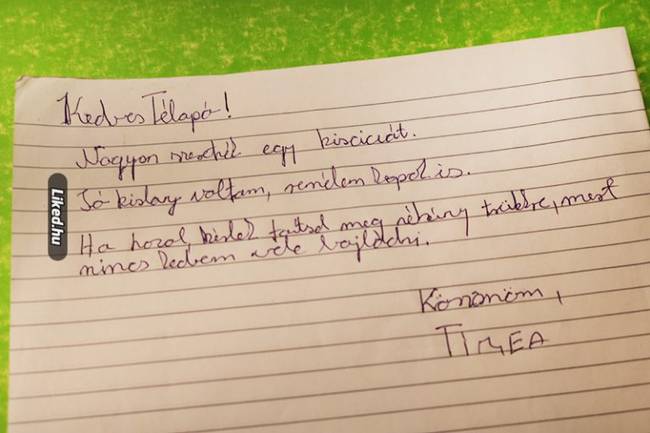 Kedves Télapó!
Nagyon szeretnék egy kiscicát.
Jó kislány voltam, remélem kapok is.
Ha hozol, kérlek tanítsd meg néhány trükkre, mert
nincs kedvem vele bajlódni.
Köszönöm,
TÍMEA
Liked.hu